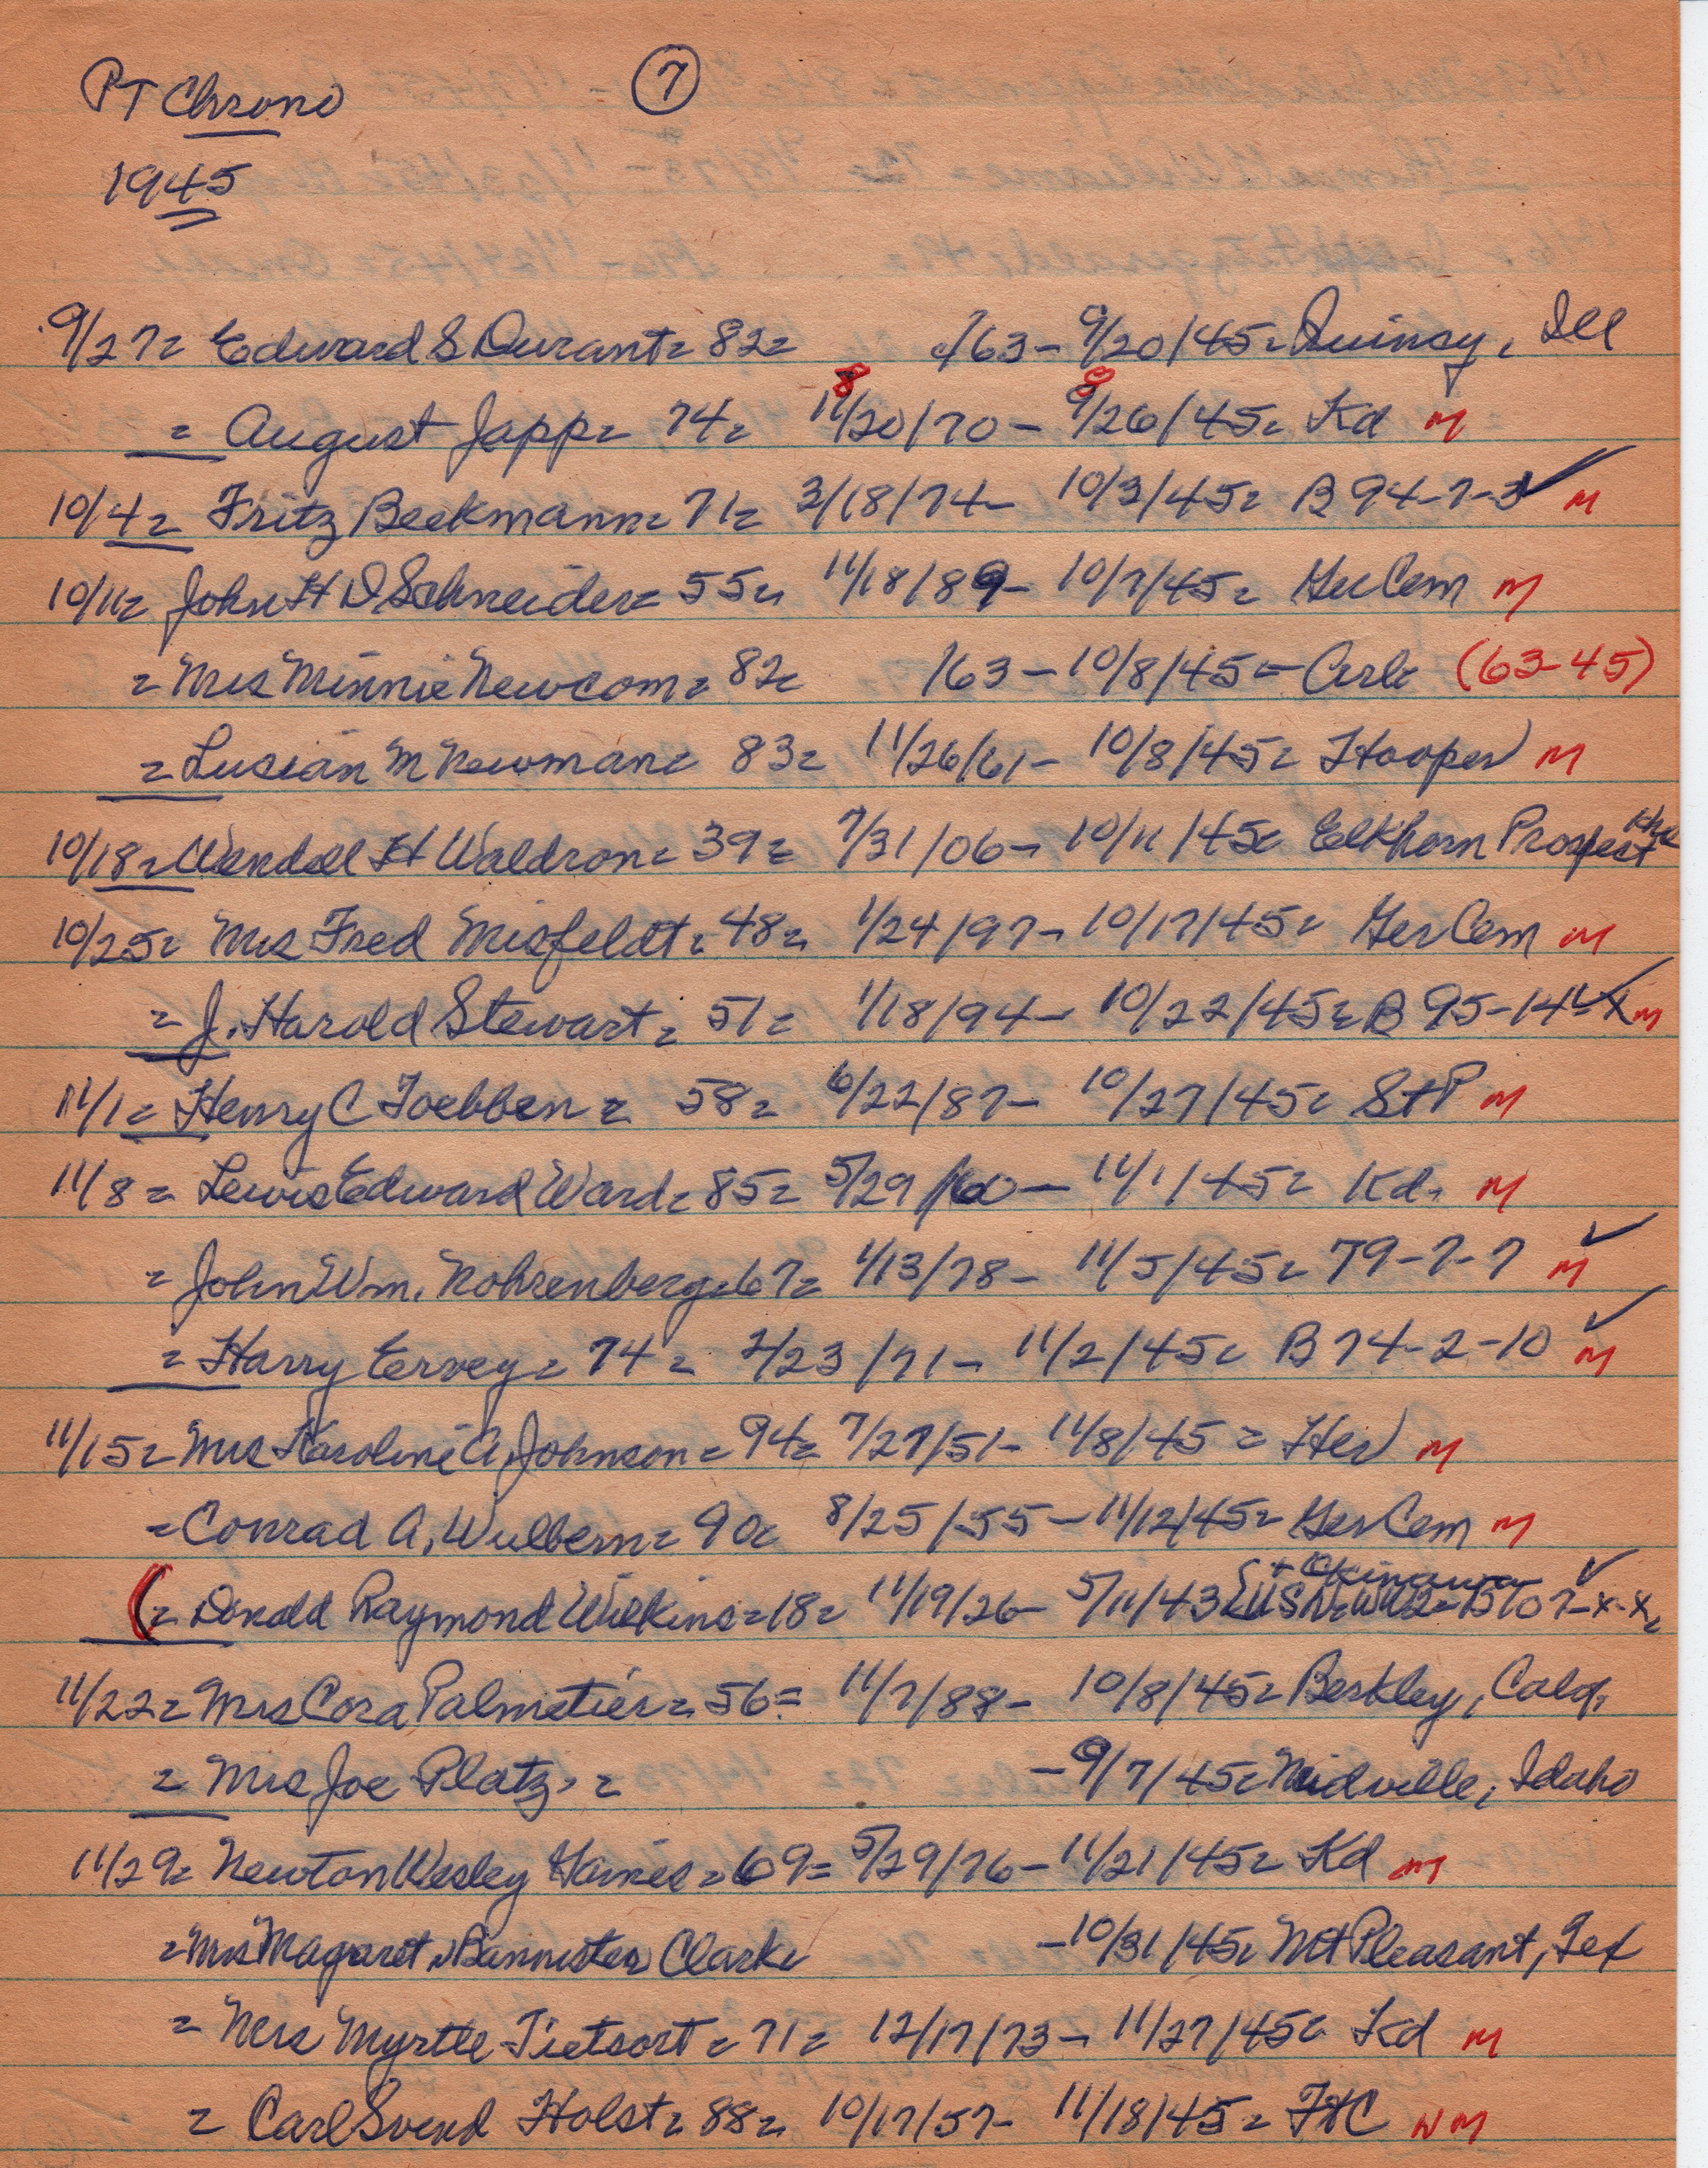 PT Chrono 7
1945
9/27= Edward S Durant= 82= /63- 9/20/45= Quinsy, Ill
8 8
= August Japp= 74= 11/20/70- 9/26/45= Kd M
10/4= Fritz Beekmann= 71= 3/18/74- 10/3/45= B 94-7-3 ✓ M
10/11= John H D Schneider= 55= 11/18/89- 10/7/45= Ger Cem M
= Mrs Minnie Newcom= 82= /63- 10/8/45= Arl= (63-45)
= Lusian M Newman= 83= 11/26/61- 10/8/45= Hooper M
10/18= Wendell H Waldron= 39= 7/31/06- 10/11/45= Elkhorn Prospect
10/25= Mrs Fred Misfeldt= 48= 1/24/97- 10/17/45= Ger Cem M
= J. Harold Stewart= 51= 1/18/94- 10/22/45= B 95-14 ✓ X M
11/1= Henry C Toebben= 58= 6/22/87- 10/27/45= St P M
11/8= Lewis Edward Ward= 85= 5/29/60- 11/1/45= Kd. M
= John Wm. Nohrenberg= 67= 1/13/78- 11/5/45= 79-7-7 ✓ M
= Harry Ervey= 74= 2/23/71- 11/2/45= B 74-2-10 ✓ M
11/15= Mrs Karoline A Johnson= 94= 7/27/51- 11/8/45= Her M
= Conrad A. Wulbern= 90= 8/25/55- 11/12/45= Ger Cem M
+ Okinawa ✓
(= Donald Raymond Wilkins= 18= 11/19/26- 5/11/43 USN= WW2= -x-x=
11/22= Mrs Cora Palmetier= 56= 11/7/88- 10/8/45= Berkley, Calif.
= Mrs Joe Platz.= -9/7/45= Midville, Idaho
11/29= Newton Wesley Haines= 69= 5/29/76- 11/21/45= Kd M
= Mrs Magaret Bannister Clark= -10/31/45= Mt Pleasant, Tex
= Mrs Myrtle Tietsort= 71= 12/17/73- 11/27/45= Kd M
= Carl Svend Holst= 88= 10/17/57- 11/18/45= FHC N M